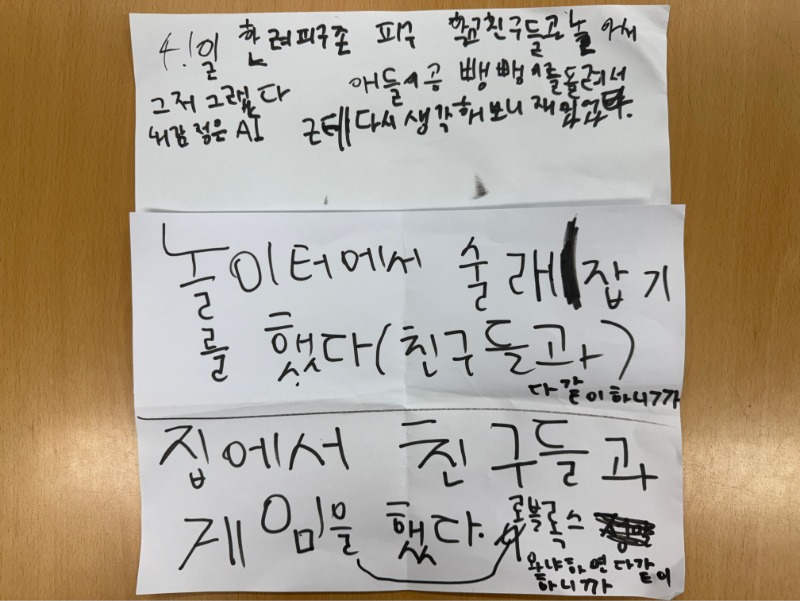 4.1일 한 려피구존 피구 학교친구들고 놀
그저 그랬다 애들시공 뺑뺑이를돌려서
뇌감 정은 AI 근테다시생각해보니재밌었다.
놀이터에서 술래잡기
를 했다(친구들과)
다같이하니까
집에서 친구들과
게임을 했다.
로블록스
왜냐하면다같이
하니까